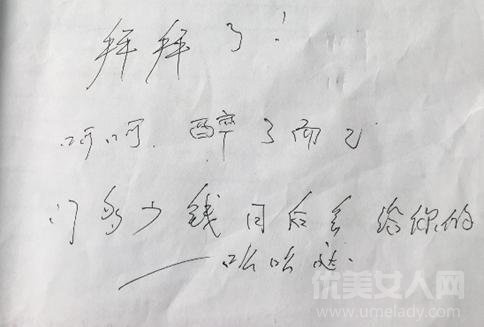 拜拜了!
呵呵.醉了而已
门多少钱日后会给你的
——么么哒.
优美女人网
www.umelady.com